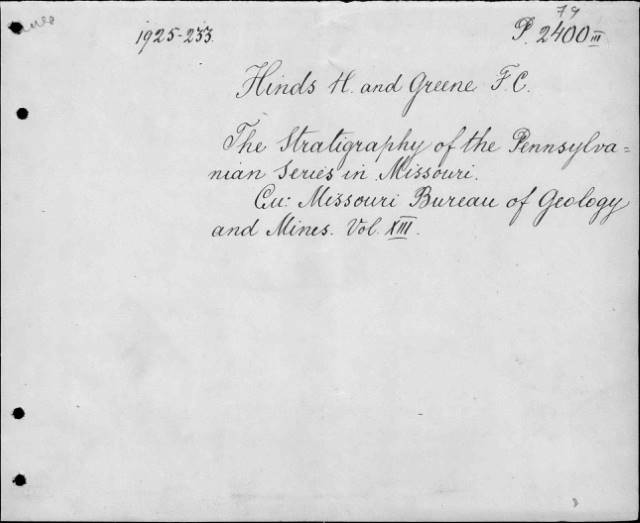 79
1925-233. P. 2400 III
Hinds H. and Greene F. C.
The Stratigraphy of the Pennsylva=
nian Series in Missouri.
Cu: Missouri Bureau of Geology
and Mines. Vol. XIII.